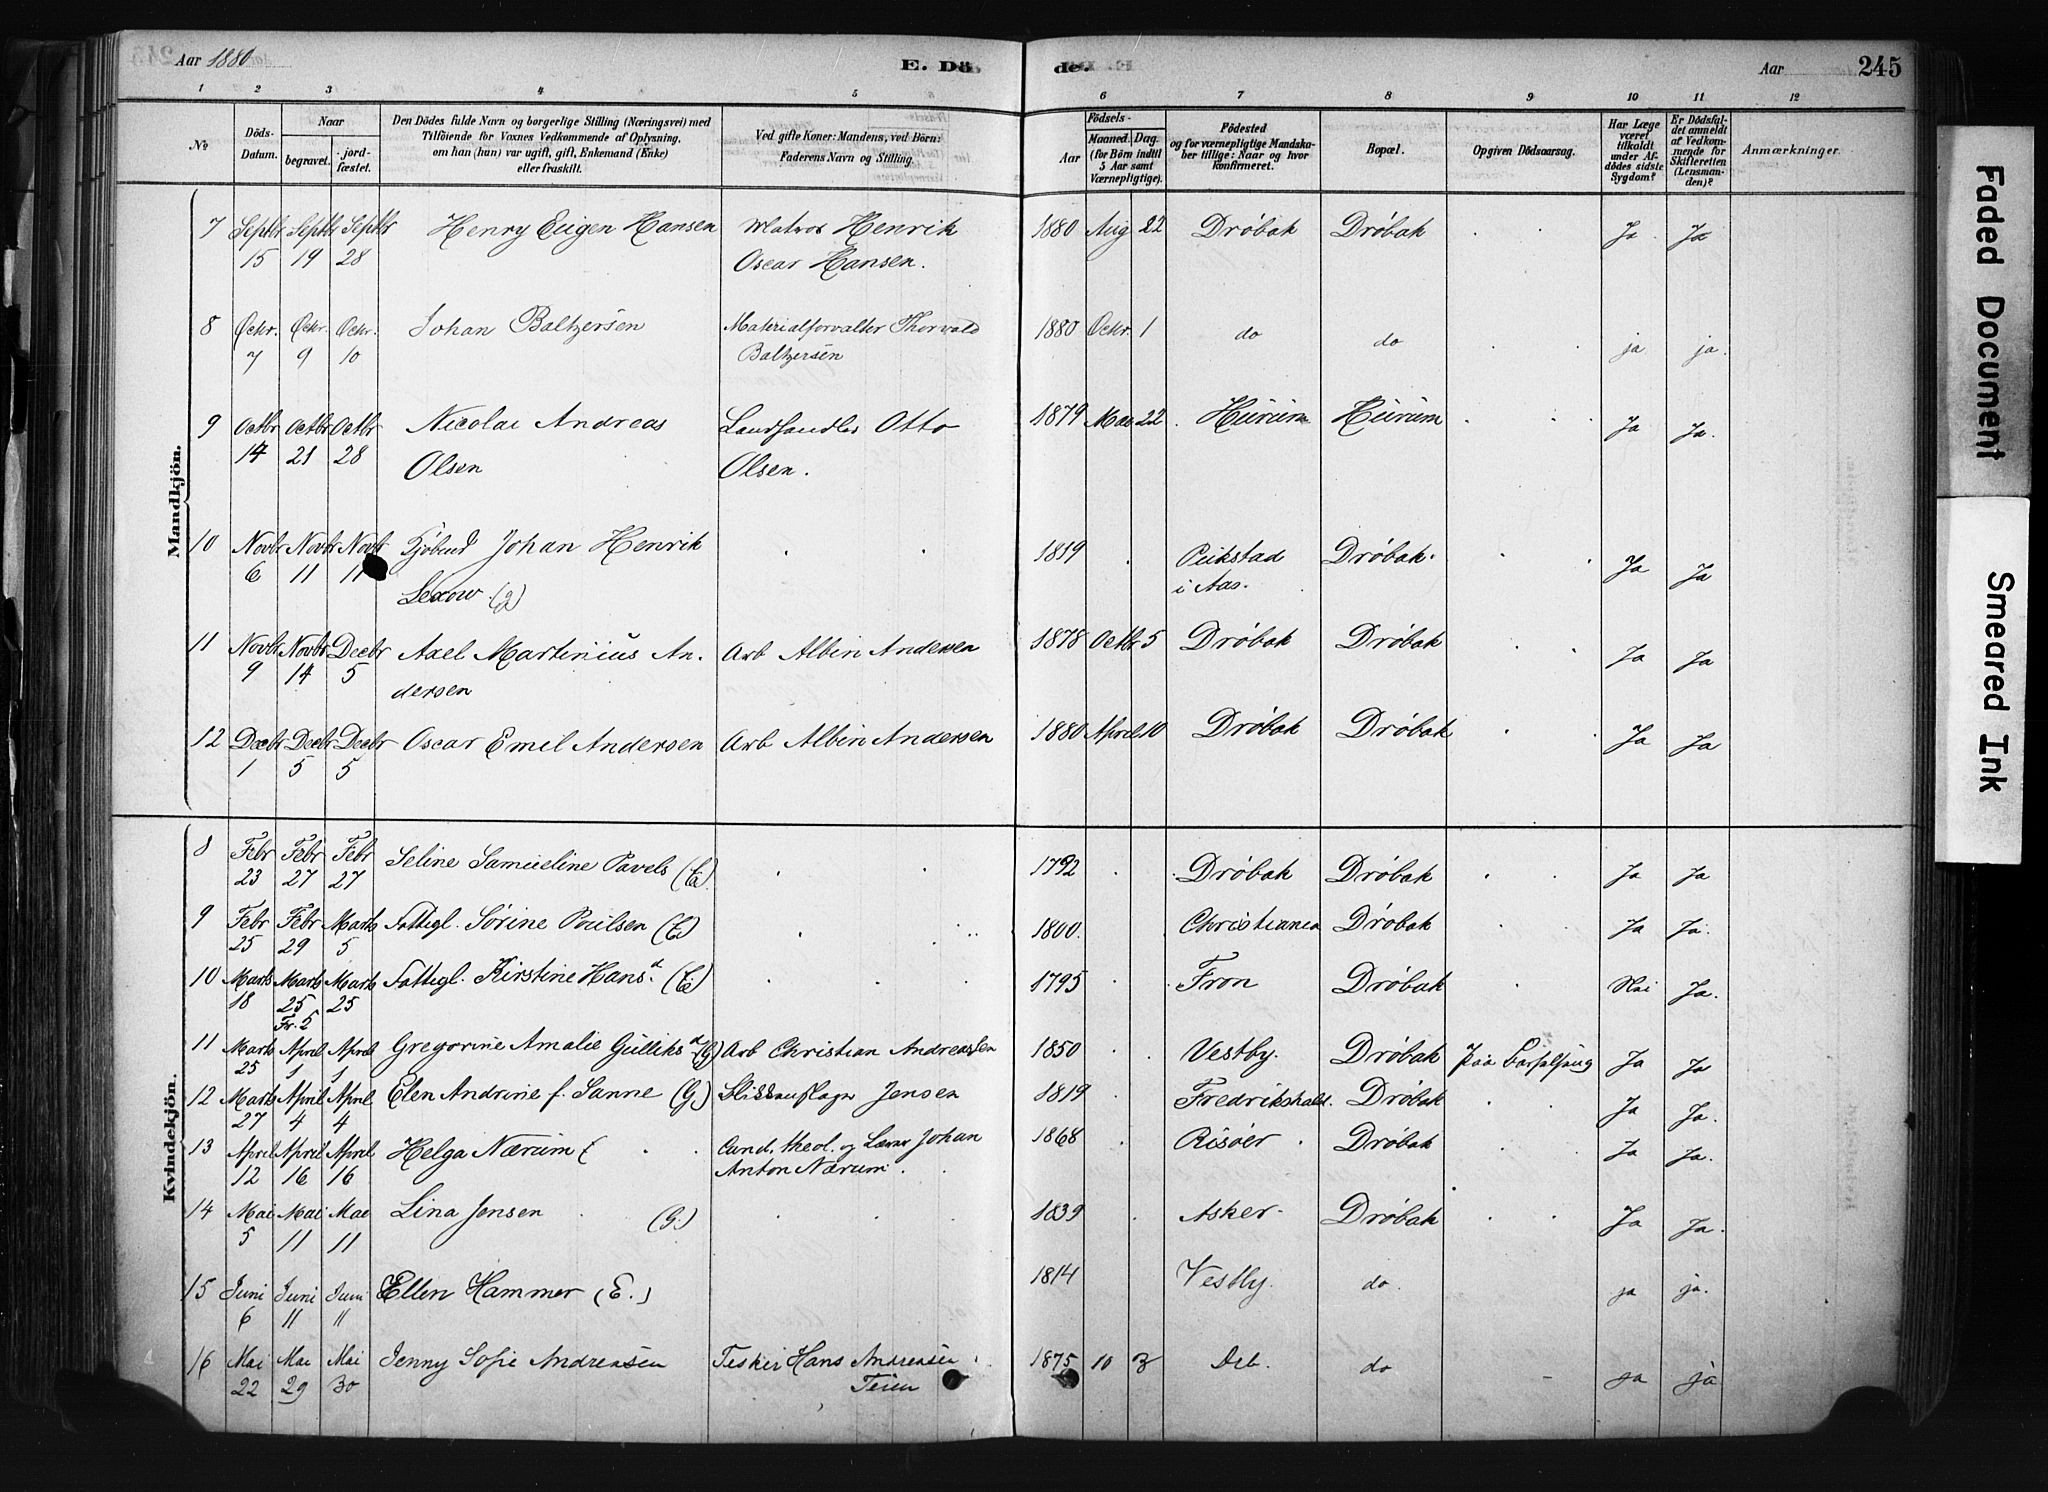 Aar 1880
E. Dö
de.
Aar
245
1 2 3 4 5 6 7 8 9 10 11 12
No
Döds-Datum.
Naar
begravet.
jord-fæstet.
Den Dödes fulde Navn og borgerlige Stilling (Næringsvei) med
Tilföiende for Voxnes Vedkommende af Oplysning,
om han (hun) var ugift, gift, Enkemand (Enke)
eller fraskilt.
Ved gifte Koner: Mandens, ved Börn:
Faderens Navn og Stilling.
Födsels-
Aar
Maaned. Dag.
(for Börn indtil
5 Aar samt
Værnepligtige).
Födested
og for værnepligtige Mandska-
ber tillige: Naar og hvor
konfirmeret.
Bopæl.
Opgiven Dödsaarsag.
Har Læge
været
tilkaldt
under Af-
dödes sidste
Sygdom?
Er Dödsfal-
det anmeldt
af Vedkom-
mende for
Skifteretten
(Lensman-
den)?
Anmærkninger.
Mandkjön.
7 Septbr Septbr Septbr Henry Eugen Hansen Matros Henrik 1880 Aug 22 Drøbak Drøbak Ja Ja
15 19 28 Oscar Hansen.
8 Octr. Octr. Octr. Johan Baltzersen Materialforvalter Thorvald 1880 Octr. 1 do do ja ja.
7 9 10 Baltzersen
9 Octbr Octbr Octbr Nicolai Andreas Landhandler Otto 1879 Mai 22 Hurum Hurum Ja Ja.
14 21 28 Olsen Olsen.
10 Novbr Novbr Novbr Kjøbmd Johan Henrik 1819 Drøbak. Ja Ja
6 11 11 Lexow (g) i Aas.
11 Novbr Novbr Decbr Axel Martinius An- Arb Albin Andersen 1878 Octbr 5 Drøbak Drøbak Ja Ja
9 14 5 dersen
12 Decbr Decbr Decbr Oscar Emil Andersen Arb Albin Andersen 1880 April 10 Drøbak Drøbak Ja Ja
1 5 5
Kvindekjön.
8 Febr Febr Febr Seline Samueline Pavels (E) 1792 Drøbak Drøbak Ja Ja
23 27 27
9 Febr Febr Marts Fattigl. Sørine Poulsen (E) 1800. Christiania Drøbak Ja Ja.
25 29 5
10 Marts Marts Marts Fattigl. Kirstine Hansd. (E) 1795 Fron Drøbak Nei Ja.
18 25 25
Fr. 5
11 Marts April April Gregorine Amalie Gulliksd (G) Arb Christian Andreassen 1850 Vestby. Drøbak paa Barselseng Ja Ja
25 1 1
12 Marts April April Elen Andrine f. Sanne (G.) Jensen 1819 Fredrikshald. Drøbak Ja Ja.
27 4 4
13 April April April Helga Nærum Cand. theol. og Lærer Johan 1868 Risøer Drøbak Ja Ja.
12 16 16 Anton Nærum.
14 Mai Mai Mai Lina Jensen (G.) 1839 Asker. Drøbak Ja Ja.
5 11 11
15 Juni Juni Juni Ellen Hammer (E.) 1814 Vestby. do. ja ja.
6 11 11
16 Mai Mai Mai Jenny Sofie Andreasen Fisker Hans Andreasen 1875 10 3 Drb. do ja ja
22 29 30 Teien
Faded Document
Smeared Ink